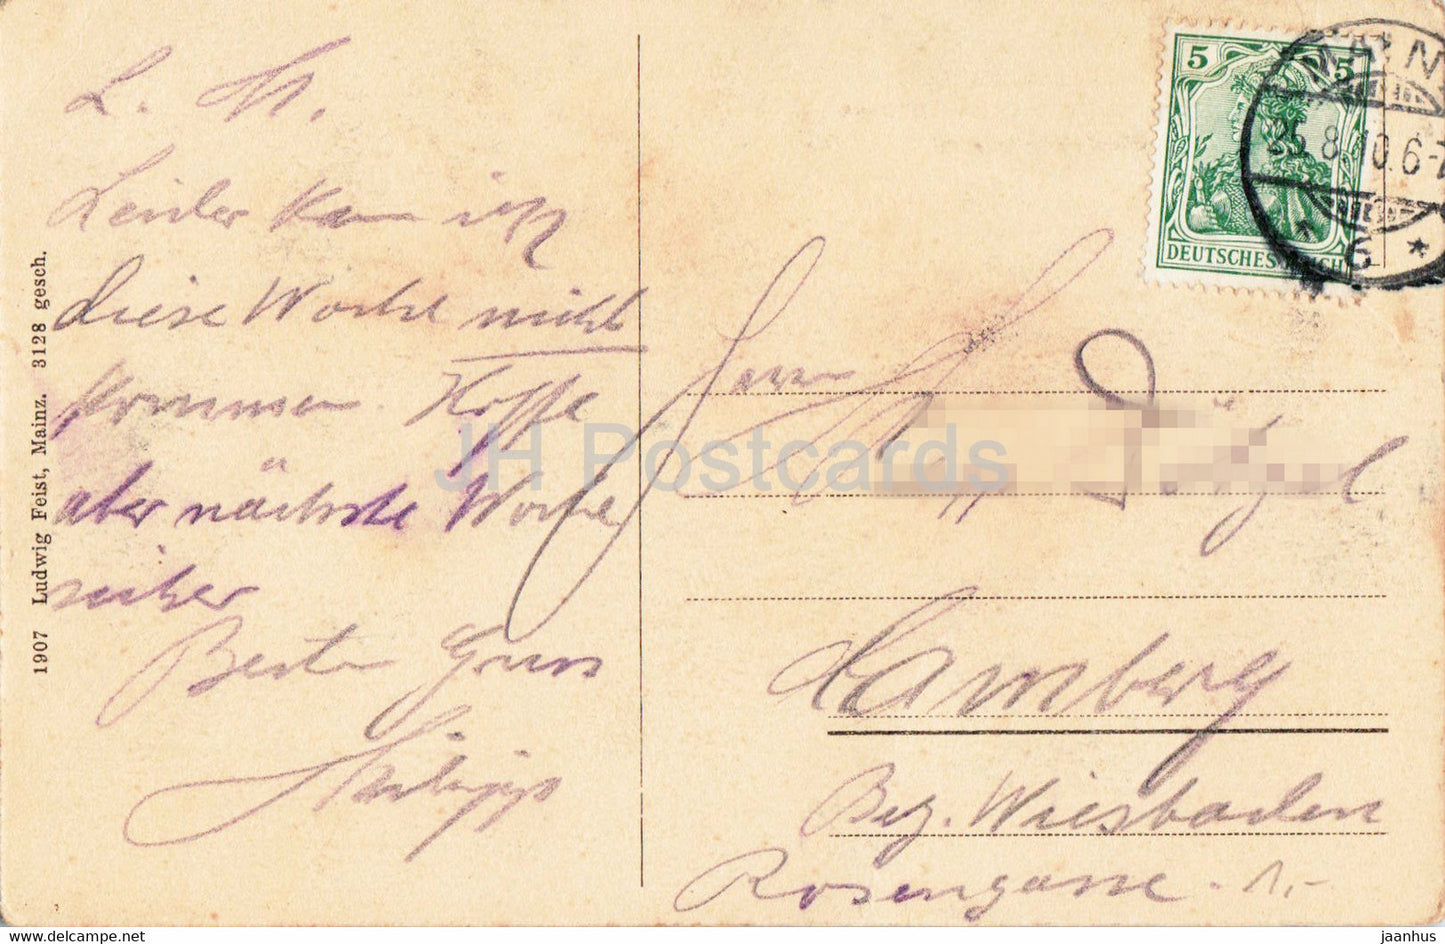 L. M.
Leider kann ich
diese Woche nicht
kommen. Hoffe
aber nächste Woche
sicher
Besten Gruss
Philipp
1907 Ludwig Feist, Mainz. 3128 gesch.
5 5
DEUTSCHES REICH
MAINZ
25.8.10.6-7
Herrn
Camberg
Bez. Wiesbaden
Rosengasse. 1.-
JH Postcards
www.jaanhus.com
jaanhus